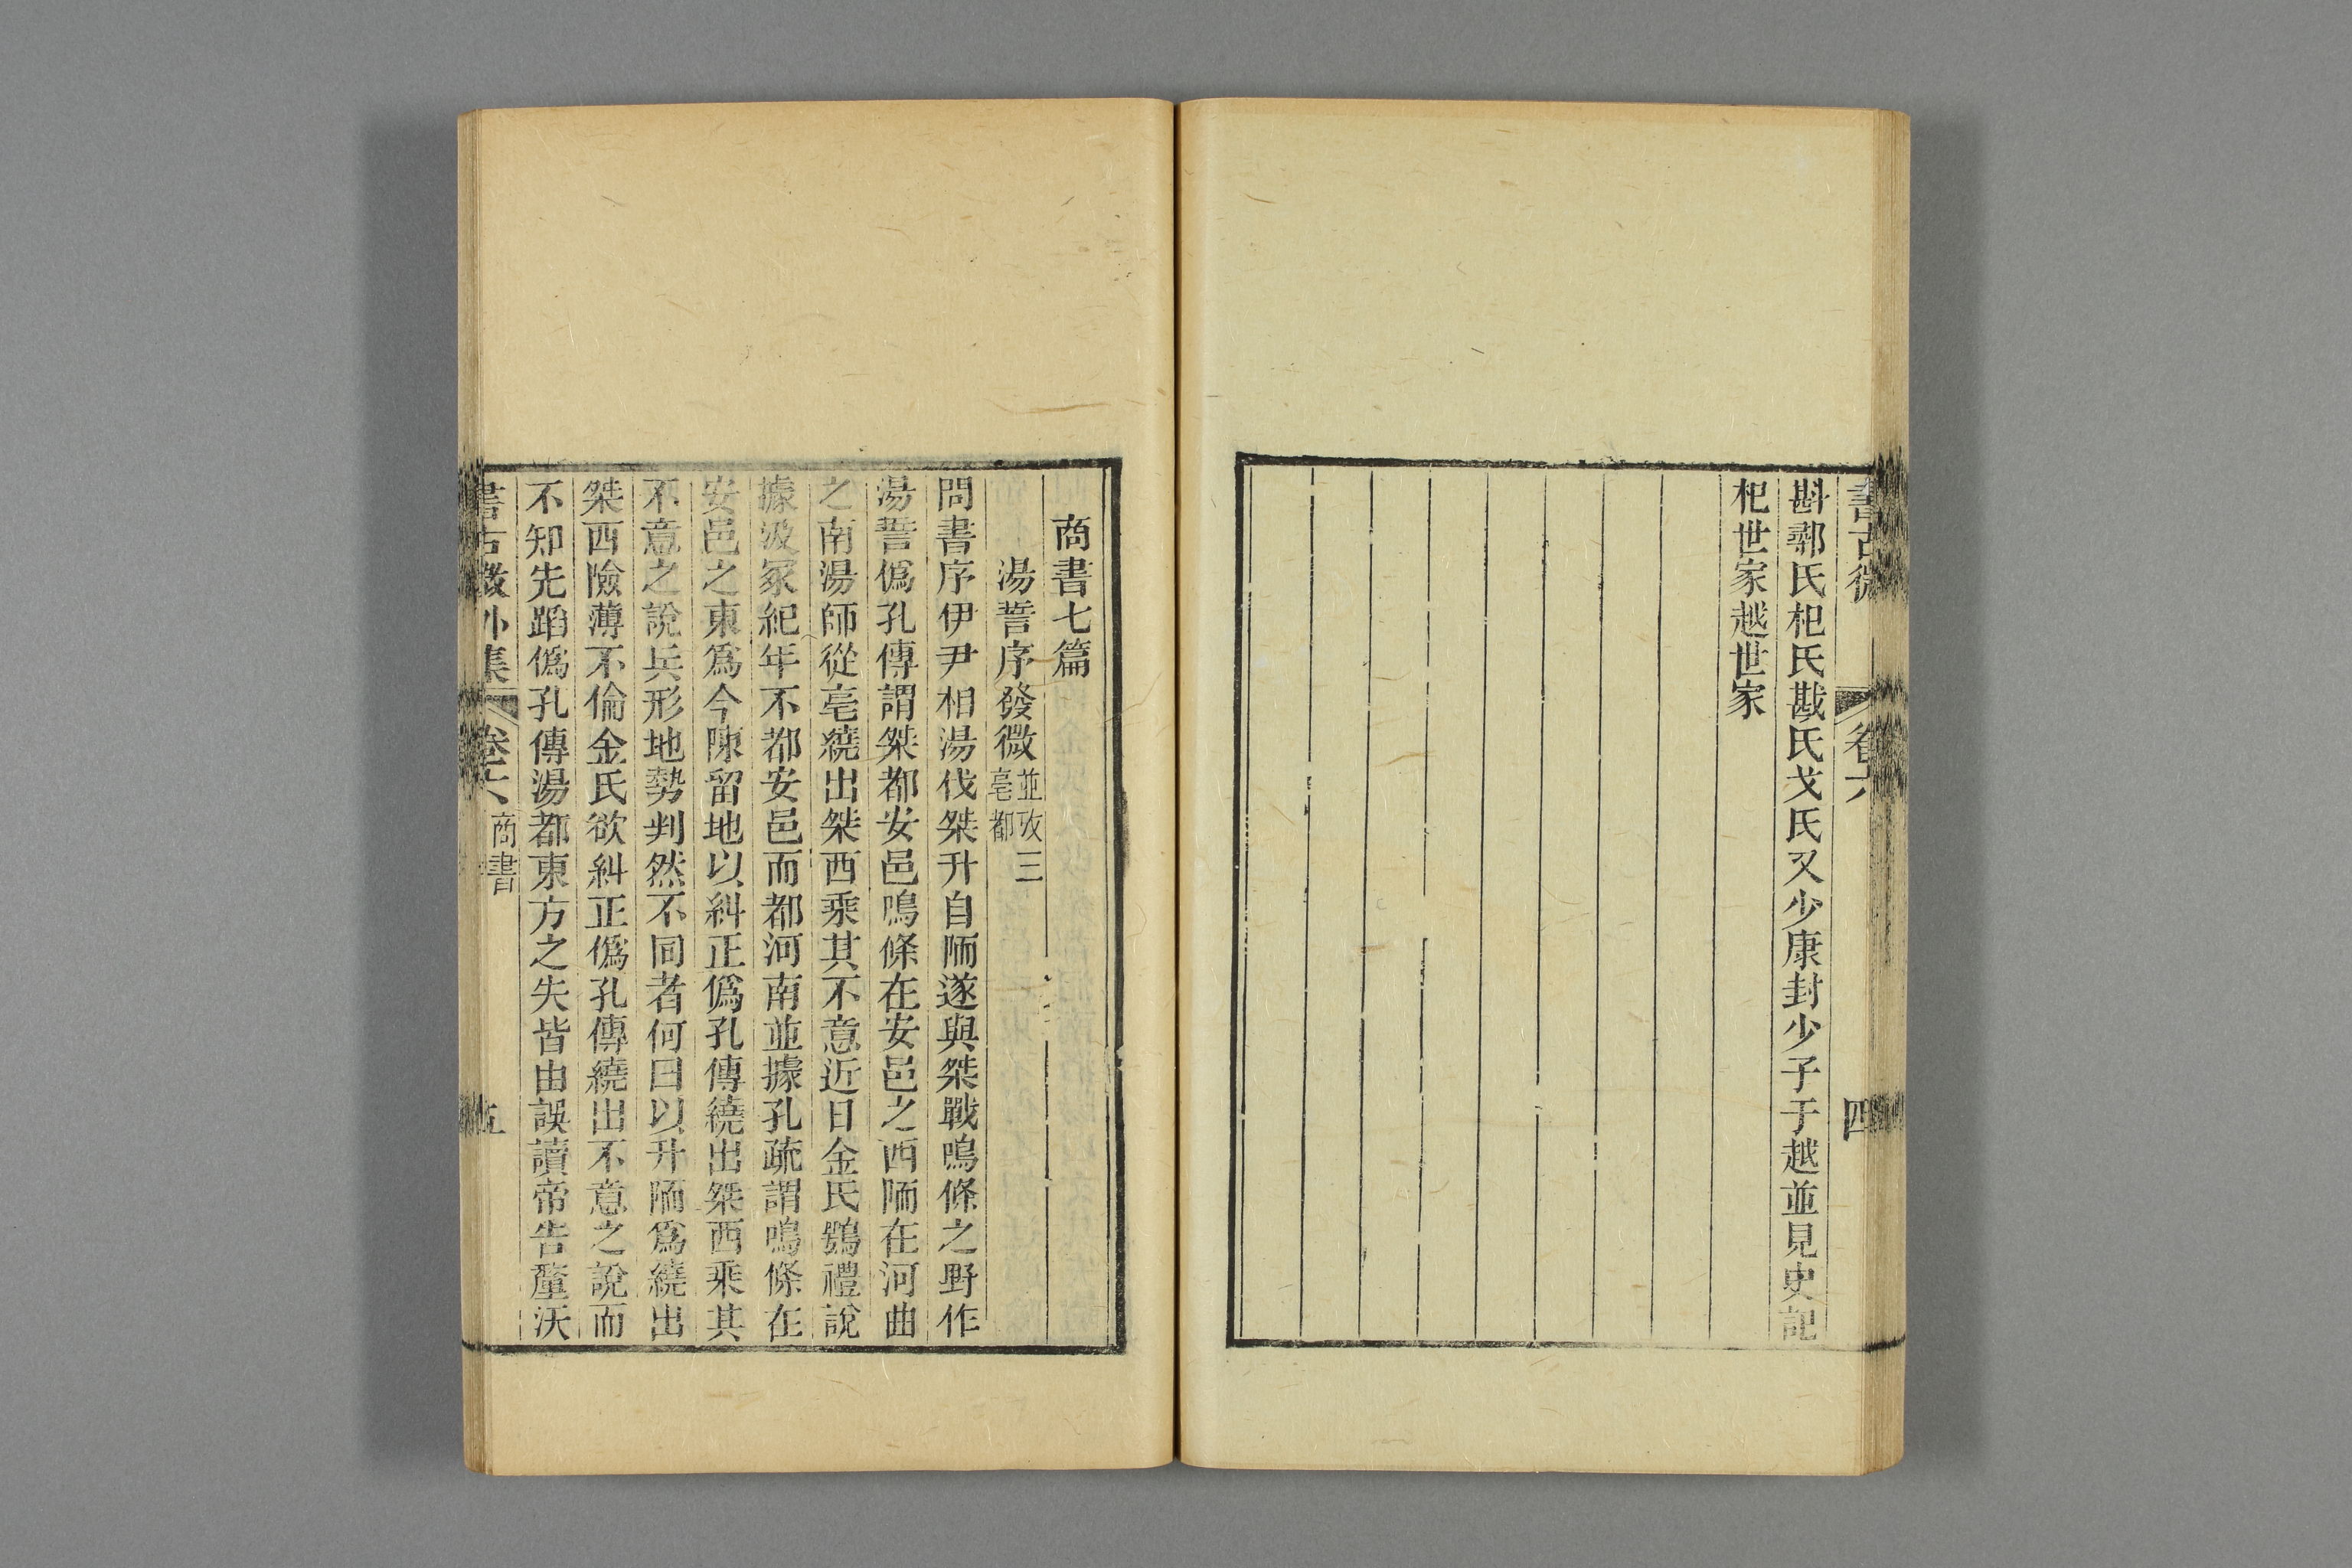 書古微
卷六
四
斟鄩氏杞氏戡氏戈氏又少康封少子于越並見史記
杞世家越世家
商書七篇
湯誓序發微並攷三亳都
問書序伊尹相湯伐桀升自陑遂與桀戰鳴條之野作
湯誓僞孔傳謂桀都安邑鳴條在安邑之西陑在河曲
之南湯師從亳繞出桀西乘其不意近日金氏鶚禮說
據汲冢紀年不都安邑而都河南並據孔疏謂鳴條在
安邑之東爲今陳留地以糾正僞孔傳繞出桀西乘其
不意之說兵形地勢判然不同者何曰以升陑爲繞出
桀西險薄不倫金氏欲糾正僞孔傳繞出不意之說而
不知先蹈僞孔傳湯都東方之失皆由誤讀帝告釐沃
書古微外集
卷六
商書
五